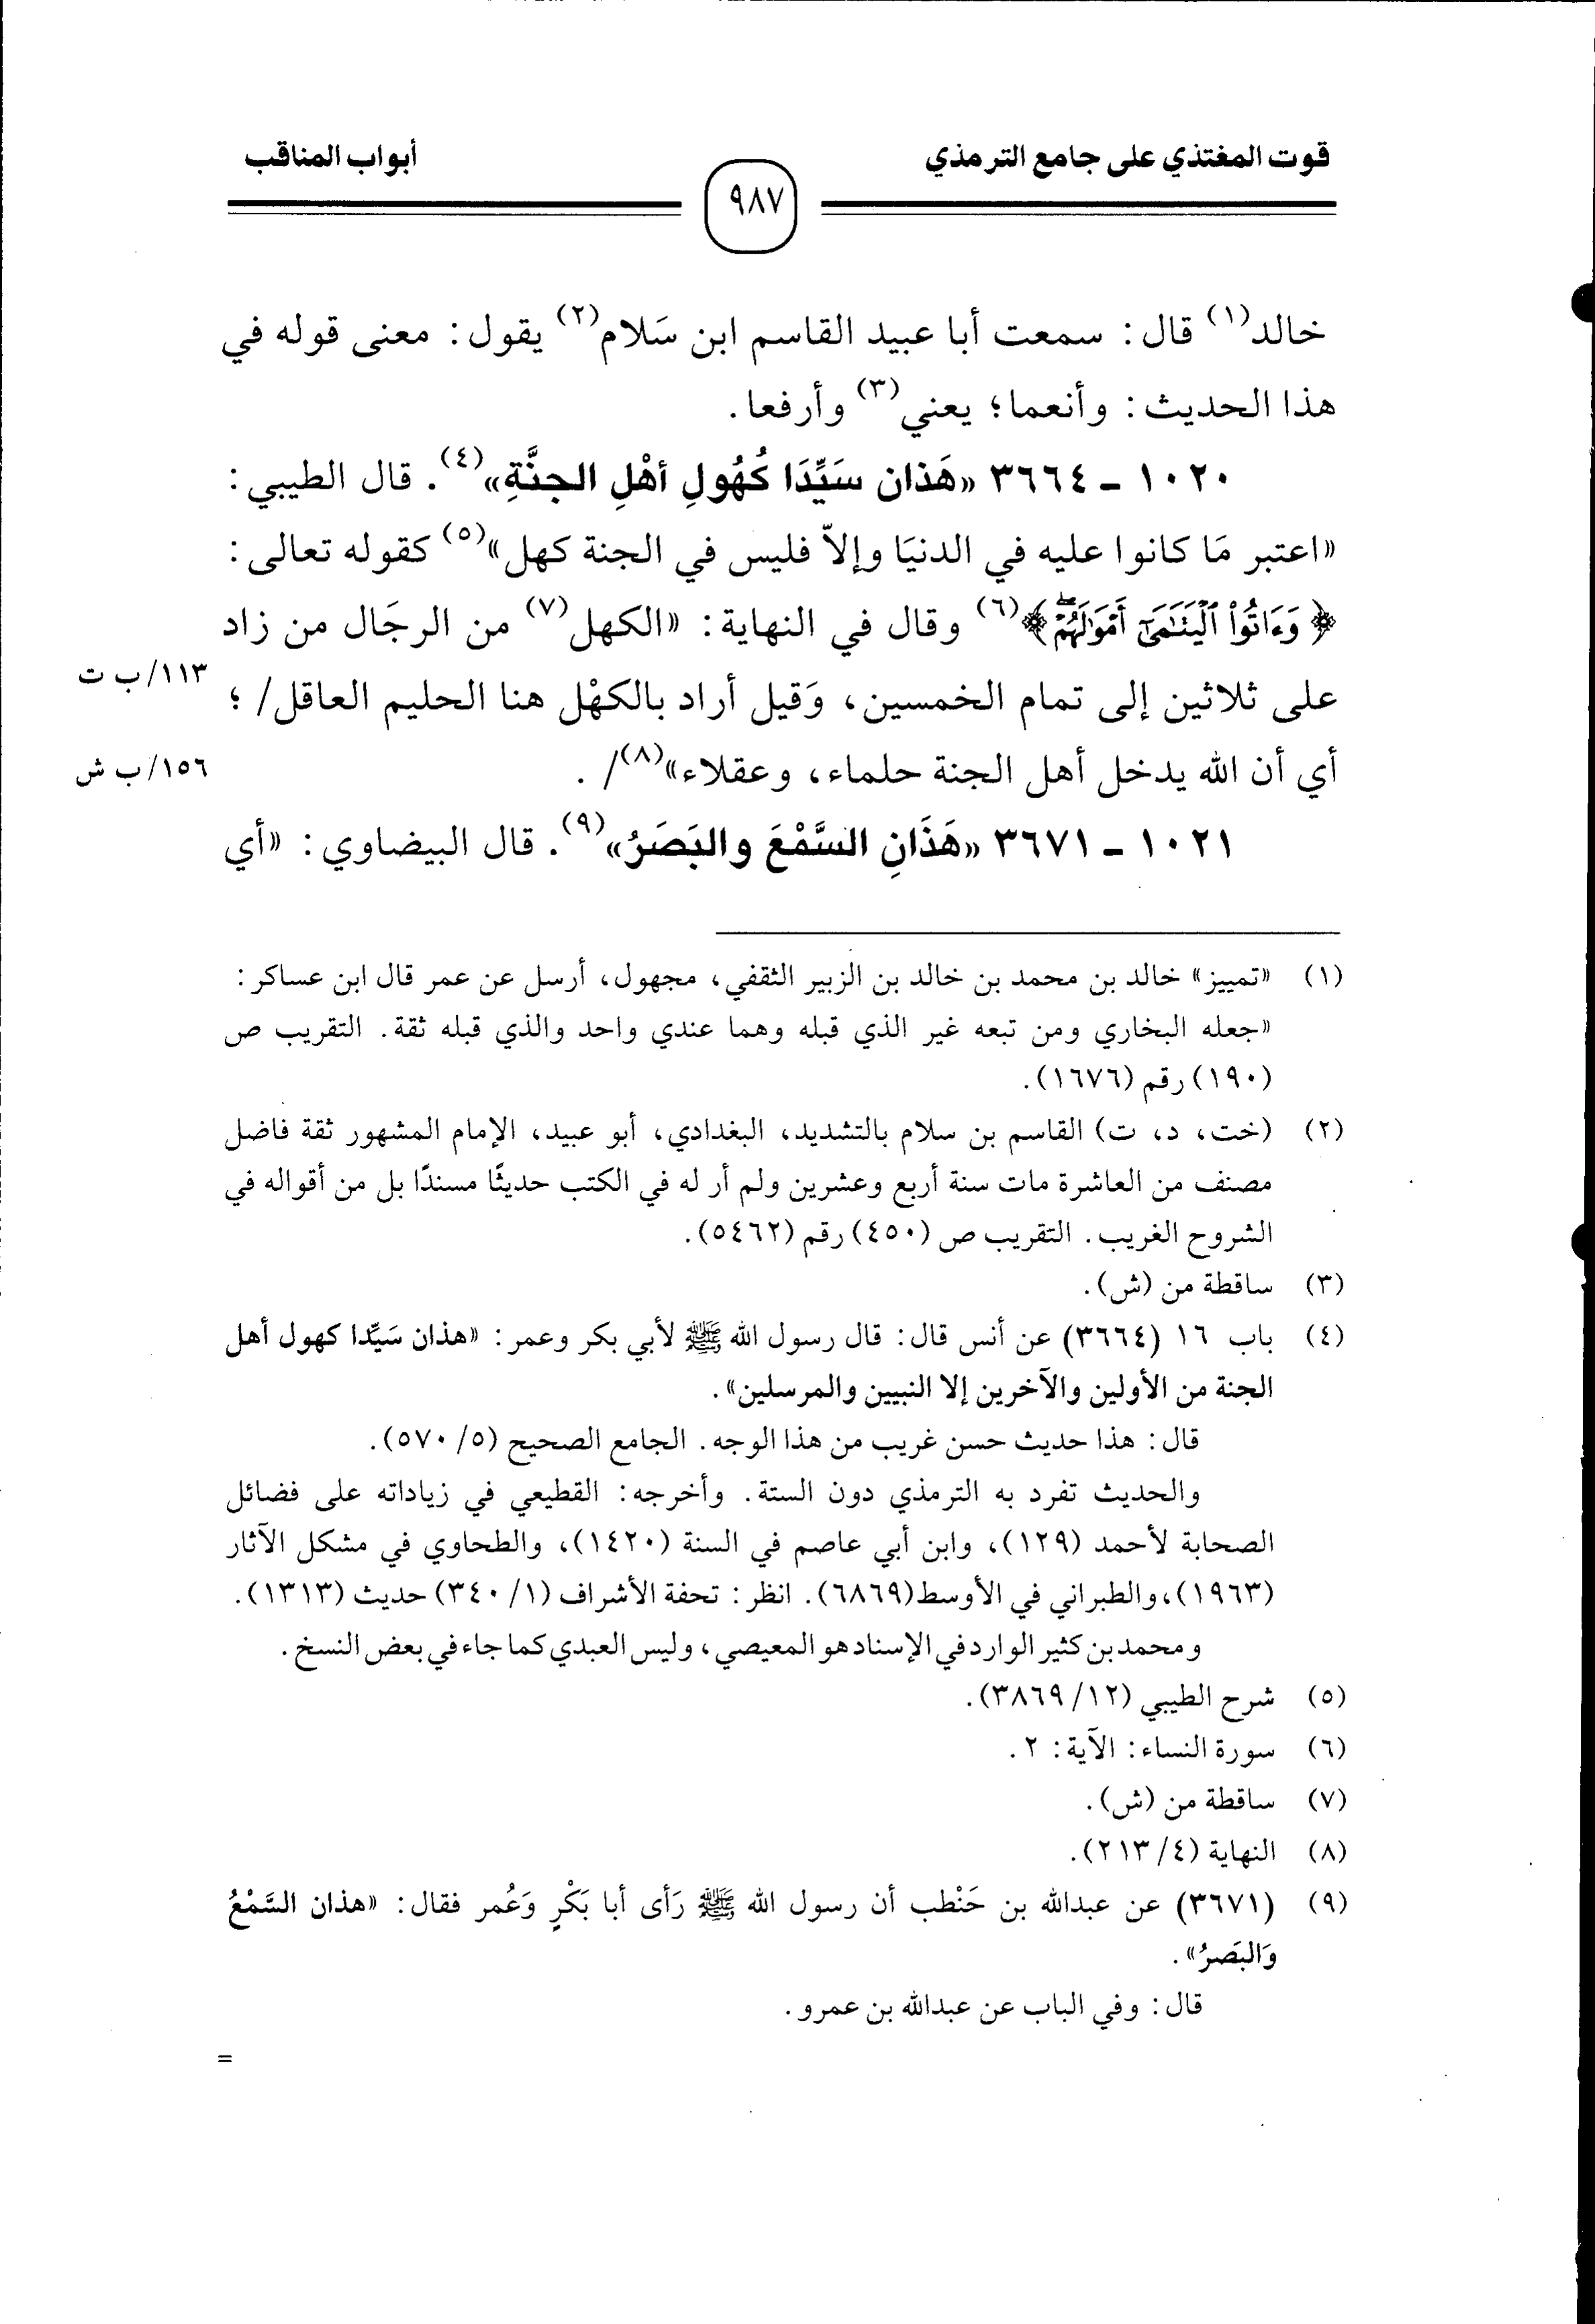 قوت المغتذي على جامع الترمذي
٩٨٧
أبواب المناقب
خالد(١) قال: سمعت أبا عبيد القاسم ابن سَلام(٢) يقول: معنى قوله في
هذا الحديث: وأنعما؛ يعني(٣) وأرفعا.
١٠٢٠ ـ ٣٦٦٤ «هَذان سَيِّدَا كُهُولِ أهْلِ الجنَّةِ»(٤). قال الطيبي:
«اعتبر مَا كانوا عليه في الدنيَا وإلاّ فليس في الجنة كهل»(٥) كقوله تعالى:
﴿وَءَاتُواْ ٱلۡيَتَٰمَىٰٓ أَمۡوَٰلَهُمۡۖ﴾(٦) وقال في النهاية: «الكهل(٧) من الرجَال من زاد
١١٣/ ب ت
على ثلاثين إلى تمام الخمسين، وَقيل أراد بالكهْل هنا الحليم العاقل/ ؛
أي أن الله يدخل أهل الجنة حلماء، وعقلاء»(٨)/ .
١٥٦/ ب ش
١٠٢١ ـ ٣٦٧١ «هَذَانِ السَّمْعَ والبَصَرُ»(٩). قال البيضاوي: «أي
(١) «تمييز» خالد بن محمد بن خالد بن الزبير الثقفي، مجهول، أرسل عن عمر قال ابن عساكر:
«جعله البخاري ومن تبعه غير الذي قبله وهما عندي واحد والذي قبله ثقة. التقريب ص
(١٩٠) رقم (١٦٧٦).
(٢) (خت، د، ت) القاسم بن سلام بالتشديد، البغدادي، أبو عبيد، الإمام المشهور ثقة فاضل
مصنف من العاشرة مات سنة أربع وعشرين ولم أر له في الكتب حديثًا مسندًا بل من أقواله في
الشروح الغريب. التقريب ص (٤٥٠) رقم (٥٤٦٢).
(٣) ساقطة من (ش).
(٤) باب ١٦ (٣٦٦٤) عن أنس قال: قال رسول الله ﷺ لأبي بكر وعمر: «هذان سَيِّدا كهول أهل
الجنة من الأولين والآخرين إلا النبيين والمرسلين».
قال: هذا حديث حسن غريب من هذا الوجه. الجامع الصحيح (٥/ ٥٧٠).
والحديث تفرد به الترمذي دون الستة. وأخرجه: القطيعي في زياداته على فضائل
الصحابة لأحمد (١٢٩)، وابن أبي عاصم في السنة (١٤٢٠)، والطحاوي في مشكل الآثار
(١٩٦٣)، والطبراني في الأوسط(٦٨٦٩). انظر: تحفة الأشراف (١/ ٣٤٠) حديث (١٣١٣).
ومحمد بن كثير الوارد في الإسناد هو المعيصي، وليس العبدي كما جاء في بعض النسخ.
(٥) شرح الطيبي (١٢/ ٣٨٦٩).
(٦) سورة النساء: الآية: ٢.
(٧) ساقطة من (ش).
(٨) النهاية (٤/ ٢١٣).
(٩) (٣٦٧١) عن عبدالله بن حَنْطب أن رسول الله ﷺ رَأى أبا بَكْرٍ وَعُمر فقال: «هذان السَّمْعُ
وَالبَصرُ».
قال: وفي الباب عن عبدالله بن عمرو.
=